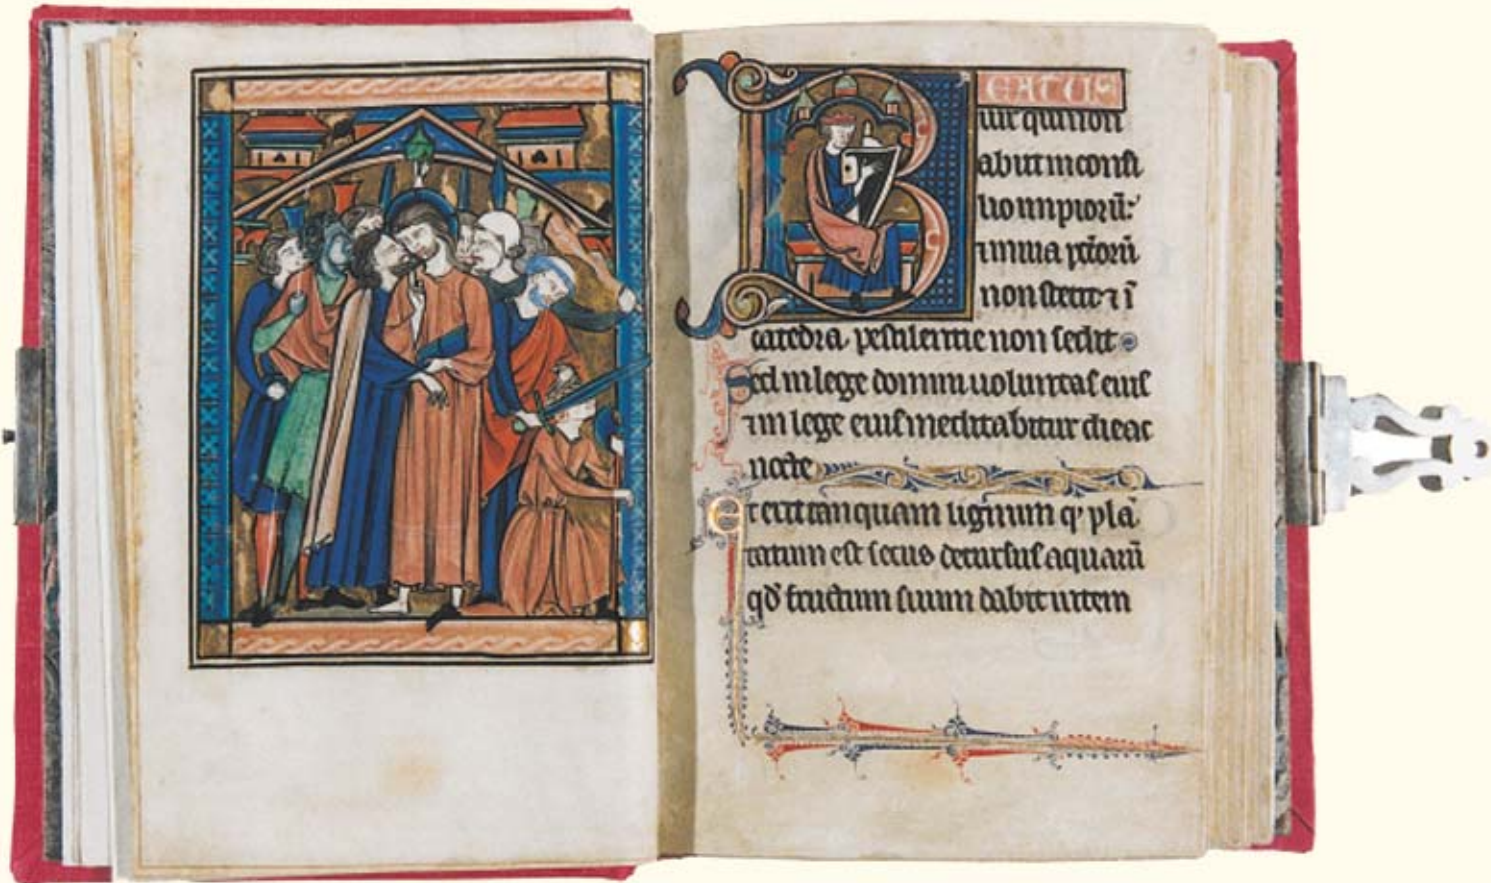 BEATUS
uir qui non
abiit in consi
lio impiorũ:
⁊ in uia pc̃torũ
non stetit ⁊ ĩ
catedra pestilentie non sedit
Sed in lege domini uoluntas eius
⁊ in lege eius meditabitur die ac
nocte
Et erit tanquam lignum q' pla
tatum est secus decursus aquarũ
qđ fructum suum dabit in tem